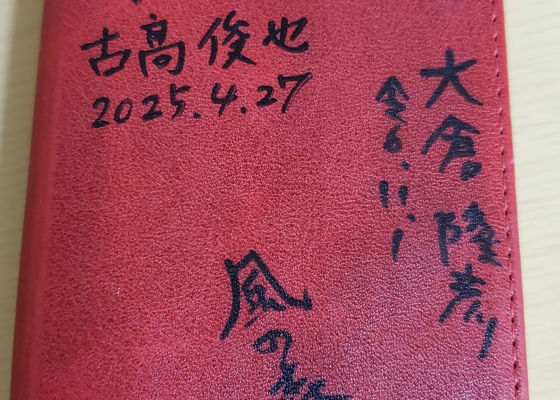 古高俊也
2025.4.27
大倉隆
令6.11.1
風の